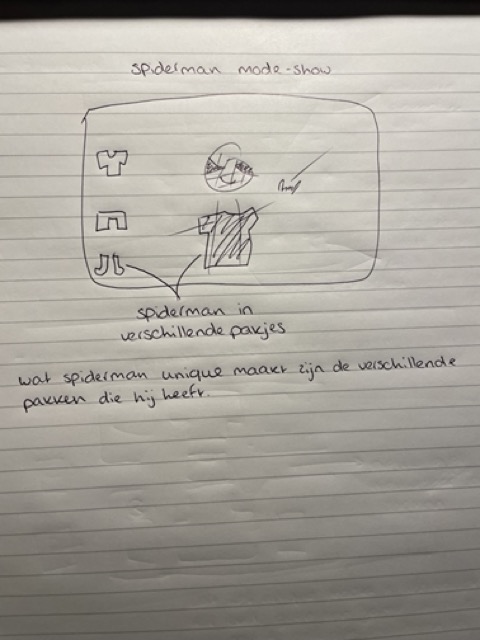 spiderman mode-show
spiderman in
verschillende pakjes
wat spiderman unique maakt zijn de verschillende
pakken die hij heeft.